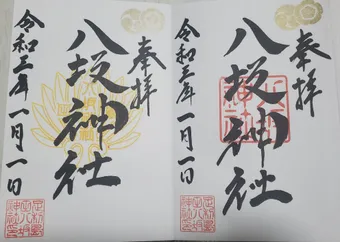 奉拝
八坂神社
令和三年一月一日
奉拝
八坂神社
令和三年一月一日